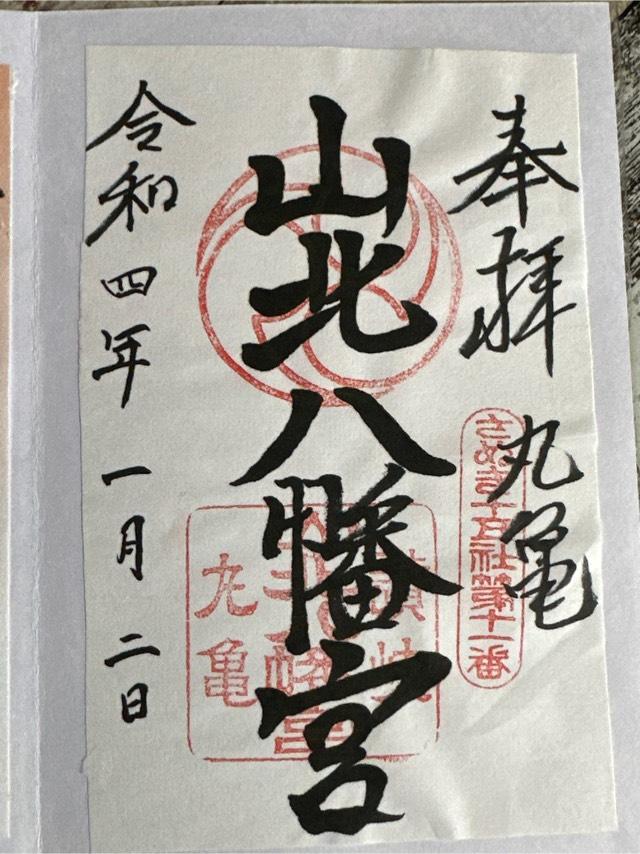 奉拝
丸亀
さぬき十五社第十一番
山北八幡宮
讃岐
山北八幡宮
丸亀
令和四年一月二日